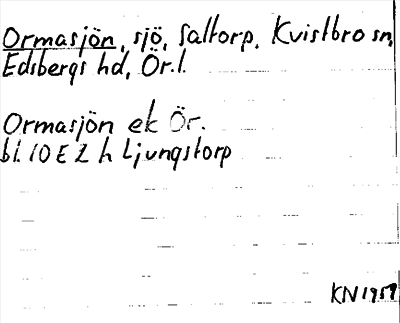 Ormasjön, sjö, Saltorp, Kvistbro sn,
Edsbergs hd, Ör.l.
Ormasjön ek Ör.
bl. 10 E 2 h Ljungstorp
KN 1959